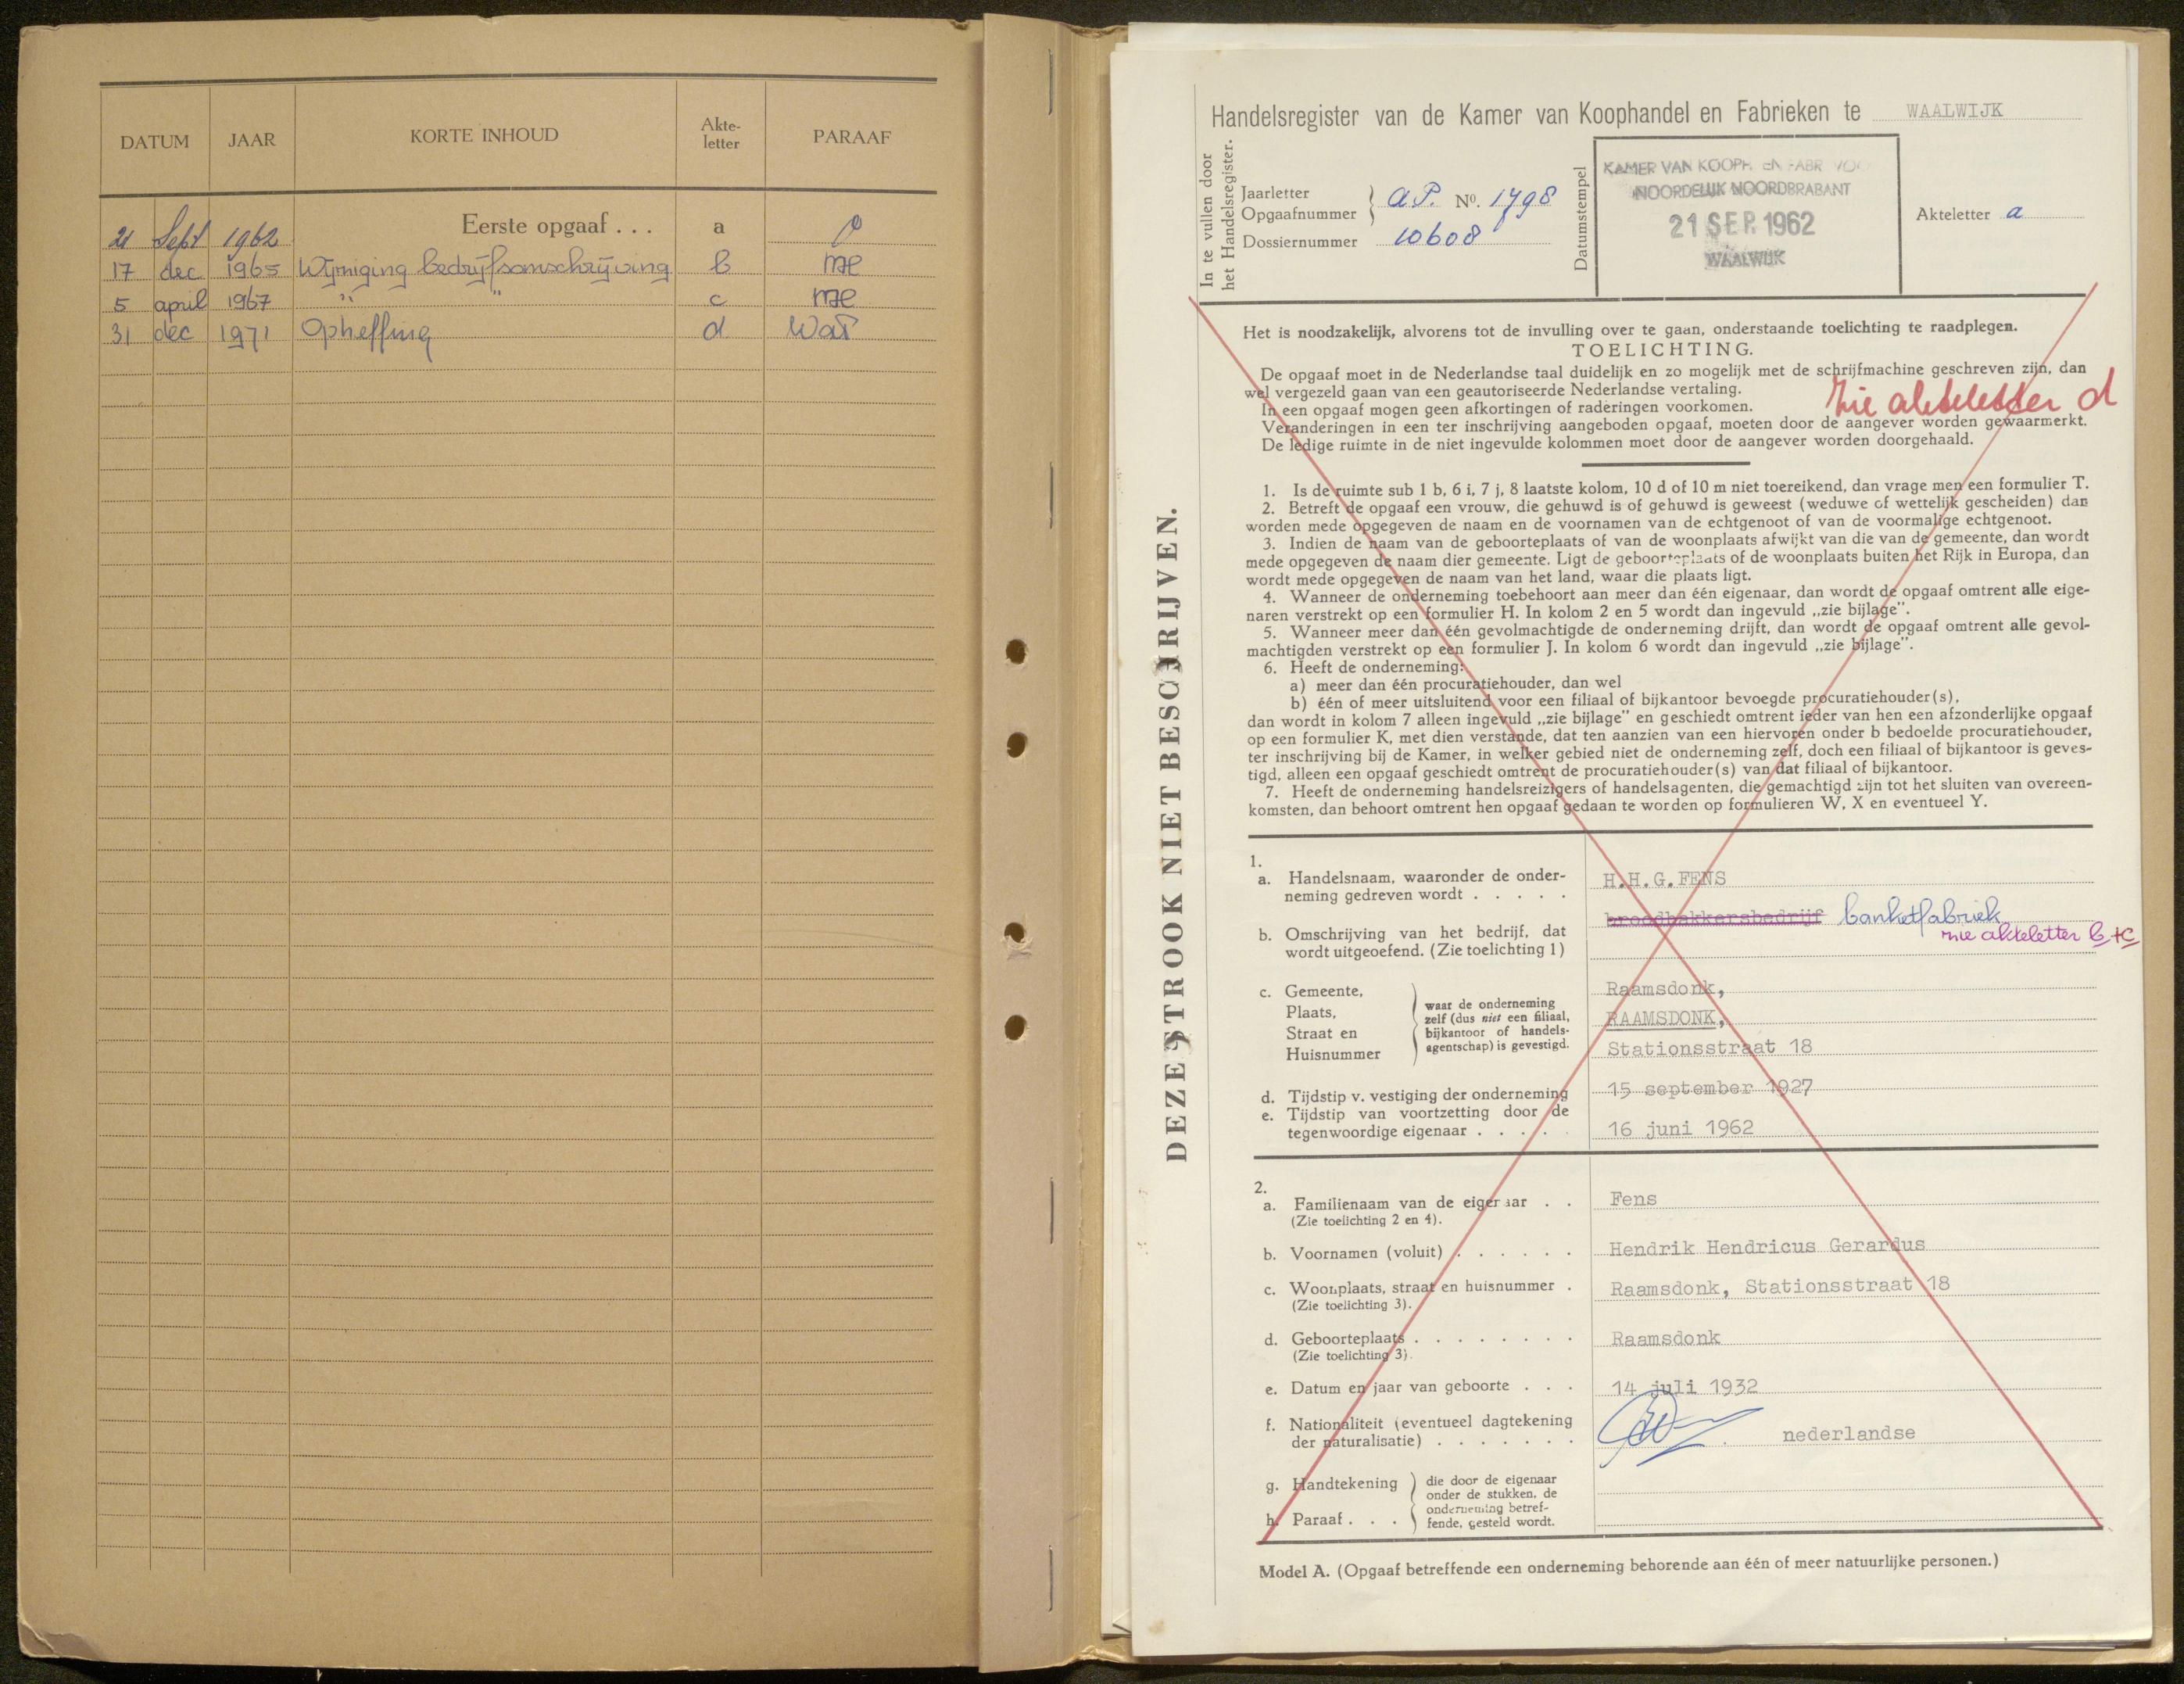 DATUM JAAR KORTE INHOUD Akte-letter PARAAF
21 Sept 1962 Eerste opgaaf . . . a
17 dec 1965 Wijziging bedrijfsomschrijving b
5 april 1967 " " c
31 dec 1971 Opheffing d
DEZE STROOK NIET BESCHRIJVEN.
Handelsregister van de Kamer van Koophandel en Fabrieken te WAALWIJK
In te vullen door
het Handelsregister.
Jaarletter
Opgaafnummer
a.P. No. 1798
Dossiernummer 10608
Datumstempel
KAMER VAN KOOPH. EN FABR VOO
NOORDELIJK NOORDBRABANT
21 SEP. 1962
WAALWIJK
Akteletter a
Het is noodzakelijk, alvorens tot de invulling over te gaan, onderstaande toelichting te raadplegen.
TOELICHTING.
De opgaaf moet in de Nederlandse taal duidelijk en zo mogelijk met de schrijfmachine geschreven zijn, dan
wel vergezeld gaan van een geautoriseerde Nederlandse vertaling.
zie akteletter d
In een opgaaf mogen geen afkortingen of raderingen voorkomen.
Veranderingen in een ter inschrijving aangeboden opgaaf, moeten door de aangever worden gewaarmerkt.
De ledige ruimte in de niet ingevulde kolommen moet door de aangever worden doorgehaald.
1. Is de ruimte sub 1 b, 6 i, 7 j, 8 laatste kolom, 10 d of 10 m niet toereikend, dan vrage men een formulier T.
2. Betreft de opgaaf een vrouw, die gehuwd is of gehuwd is geweest (weduwe of wettelijk gescheiden) dan
worden mede opgegeven de naam en de voornamen van de echtgenoot of van de voormalige echtgenoot.
3. Indien de naam van de geboorteplaats of van de woonplaats afwijkt van die van de gemeente, dan wordt
mede opgegeven de naam dier gemeente. Ligt de geboorteplaats of de woonplaats buiten het Rijk in Europa, dan
wordt mede opgegeven de naam van het land, waar die plaats ligt.
4. Wanneer de onderneming toebehoort aan meer dan één eigenaar, dan wordt de opgaaf omtrent alle eige-
naren verstrekt op een formulier H. In kolom 2 en 5 wordt dan ingevuld „zie bijlage".
5. Wanneer meer dan één gevolmachtigde de onderneming drijft, dan wordt de opgaaf omtrent alle gevol-
machtigden verstrekt op een formulier J. In kolom 6 wordt dan ingevuld „zie bijlage".
6. Heeft de onderneming:
a) meer dan één procuratiehouder, dan wel
b) één of meer uitsluitend voor een filiaal of bijkantoor bevoegde procuratiehouder(s),
dan wordt in kolom 7 alleen ingevuld „zie bijlage" en geschiedt omtrent ieder van hen een afzonderlijke opgaaf
op een formulier K, met dien verstande, dat ten aanzien van een hiervoren onder b bedoelde procuratiehouder,
ter inschrijving bij de Kamer, in welker gebied niet de onderneming zelf, doch een filiaal of bijkantoor is geves-
tigd, alleen een opgaaf geschiedt omtrent de procuratiehouder(s) van dat filiaal of bijkantoor.
7. Heeft de onderneming handelsreizigers of handelsagenten, die gemachtigd zijn tot het sluiten van overeen-
komsten, dan behoort omtrent hen opgaaf gedaan te worden op formulieren W, X en eventueel Y.
1.
a. Handelsnaam, waaronder de onder-
neming gedreven wordt . . . . . H.H.G.FENS
broodbakkersbedrijf banketfabriek
zie akteletter b+c
b. Omschrijving van het bedrijf, dat
wordt uitgeoefend. (Zie toelichting 1)
c. Gemeente, Raamsdonk,
Plaats, RAAMSDONK,
Straat en Stationsstraat 18
Huisnummer
waar de onderneming
zelf (dus niet een filiaal,
bijkantoor of handels-
agentschap) is gevestigd.
d. Tijdstip v. vestiging der onderneming 15 september 1927
e. Tijdstip van voortzetting door de
tegenwoordige eigenaar . . . . . 16 juni 1962
2.
a. Familienaam van de eigenaar . . Fens
(Zie toelichting 2 en 4).
b. Voornamen (voluit) . . . . . . Hendrik Hendricus Gerardus
c. Woonplaats, straat en huisnummer . Raamsdonk, Stationsstraat 18
(Zie toelichting 3).
d. Geboorteplaats . . . . . . . . Raamsdonk
(Zie toelichting 3).
e. Datum en jaar van geboorte . . . 14 juli 1932
f. Nationaliteit (eventueel dagtekening
der naturalisatie) . . . . . . . nederlandse
g. Handtekening
h. Paraaf . . .
die door de eigenaar
onder de stukken, de
onderneming betref-
fende, gesteld wordt.
Model A. (Opgaaf betreffende een onderneming behorende aan één of meer natuurlijke personen.)